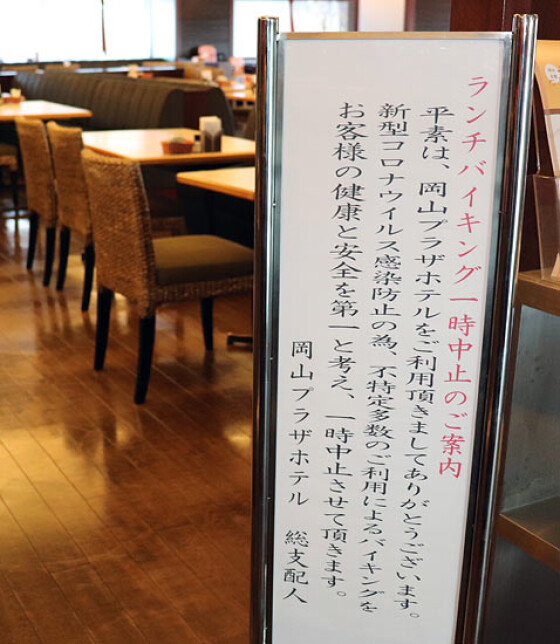 ランチバイキング一時中止のご案内
平素は、岡山プラザホテルをご利用頂きましてありがとうございます。
新型コロナウイルス感染防止の為、不特定多数のご利用によるバイキングを
お客様の健康と安全を第一と考え、一時中止させて頂きます。
岡山プラザホテル 総支配人